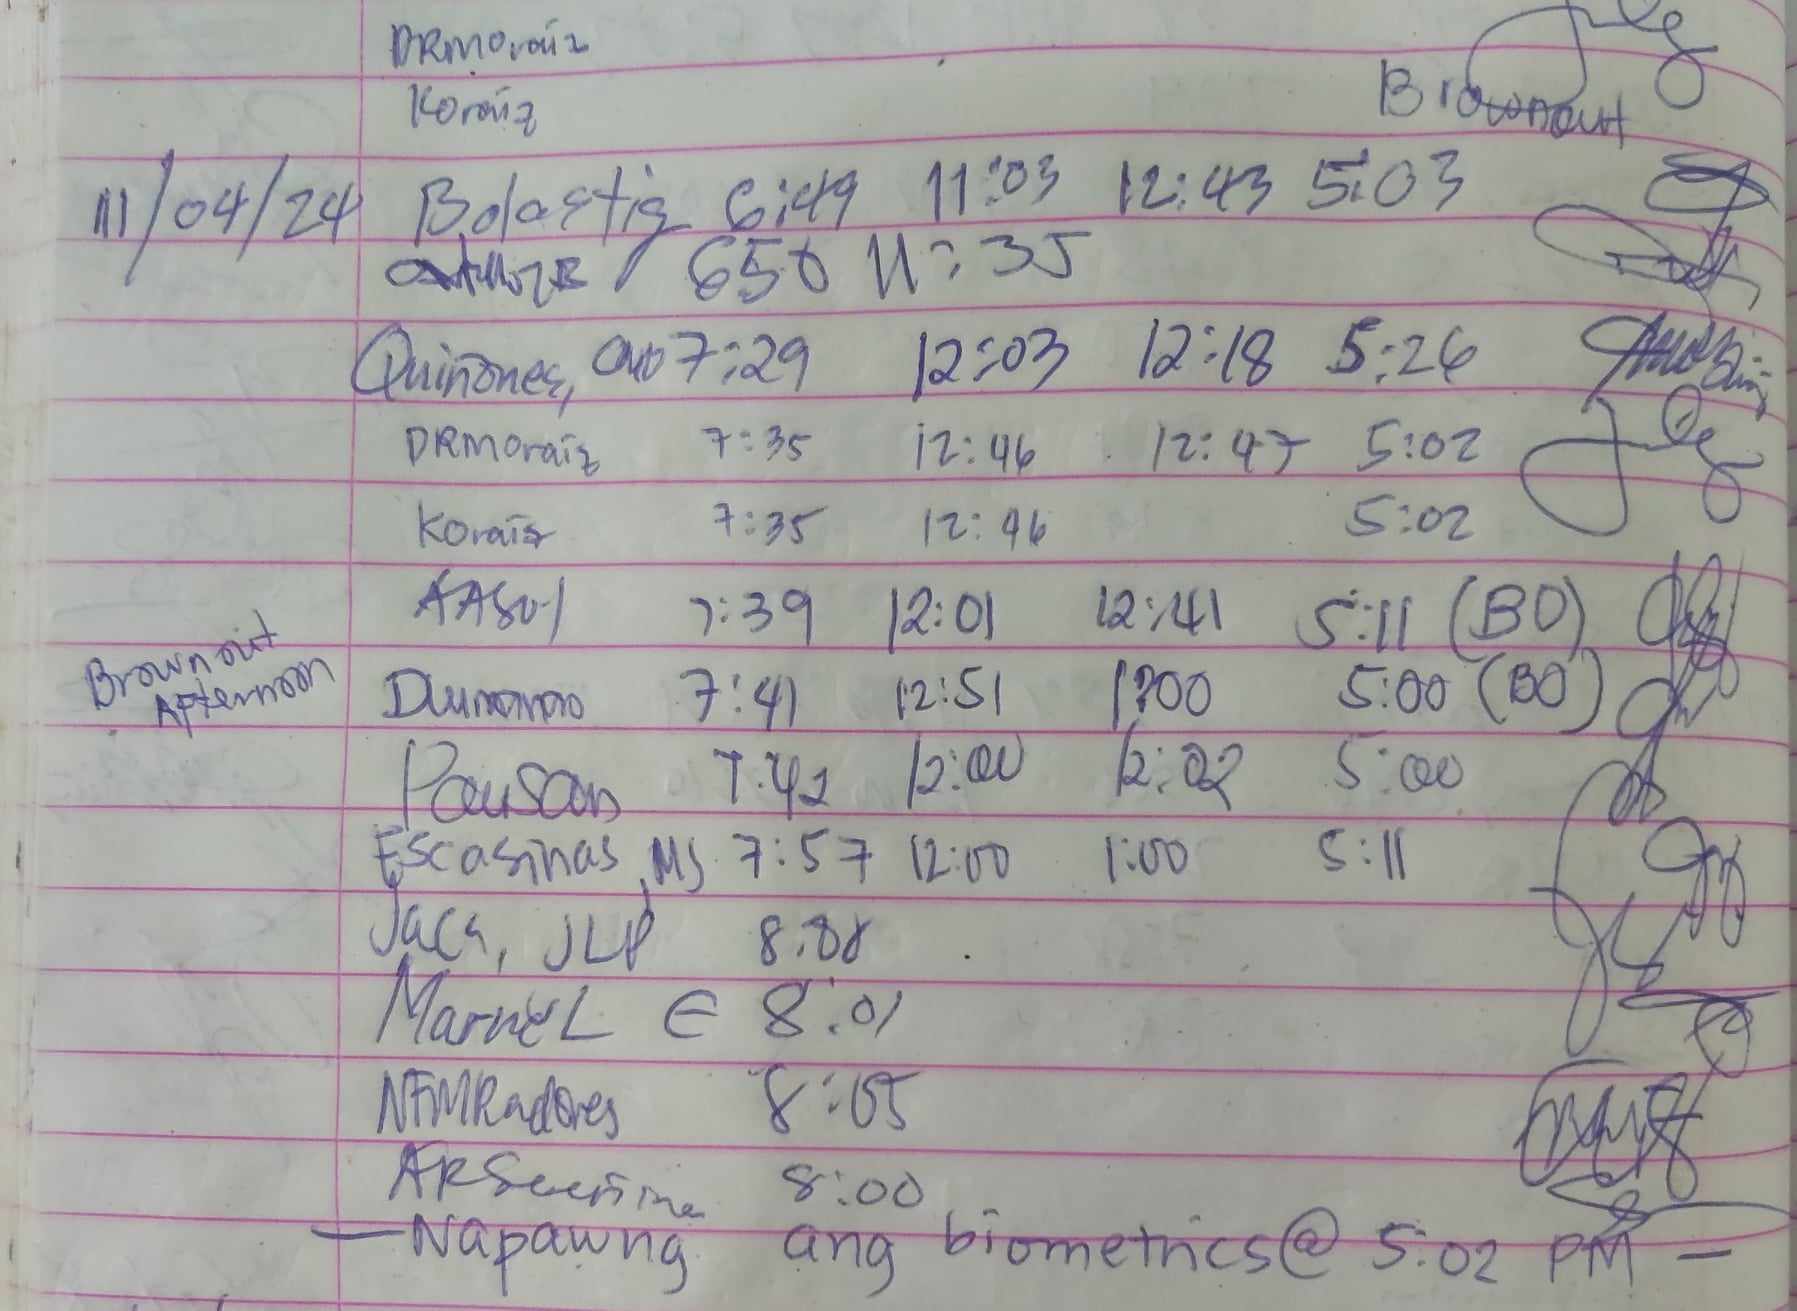 DRMoraiz
Koraiz Brownout
11/04/24 Bolastig 6:49 11:03 12:43 5:03
650 11:35
Quiñones, 7:29 12:03 12:18 5:26
DRMoraiz 7:35 12:46 12:47 5:02
Koraiz 7:35 12:46 5:02
7:39 12:01 12:41 5:11 (BO)
Brownout
Afternoon
7:41 12:51 1:00 5:00 (BO)
Pausan 7:42 12:00 12:02 5:00
Escasinas, MJ 7:57 12:00 1:00 5:11
Jaca, JLP
Marvel E 8:01
NFMRadores 8:05
8:00
— Napawng ang biometrics @ 5:02 PM —